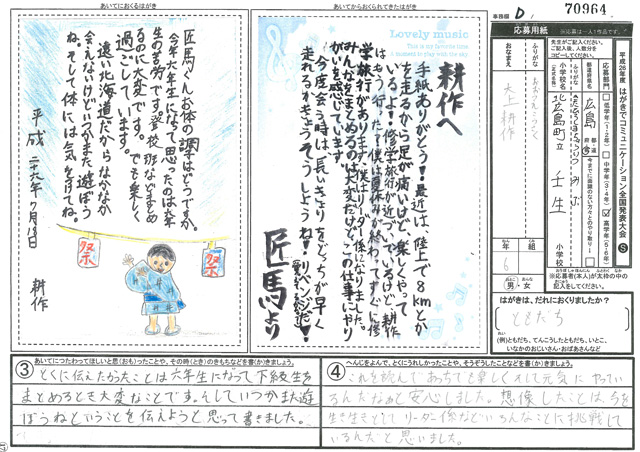 あいてにおくるはがき
匠馬くんお体の調子はどうですか。
今年六年生になって思ったのは六年
生の苦労です。登校班などまとめ
るのに大変です。でも楽しく
過ごしています。
遠い北海道だからなかなか
会えないけどいつかまた遊ぼう
ね。そして体には気をつけてね。
平成二十六年7月18日
耕作
祭
祭
あいてからおくられてきたはがき
Lovely music
This is my favorite time
耕作へ
手紙ありがとう!最近は、陸上で8kmとか
を走るから足が痛いけど、楽しくやって
いるよ!修学旅行が近づいているけど、耕作
はもう行った?僕は夏休みが終わってすぐに修
学旅行があります。僕はリーダー係になりました。
みんなをまとめるのは大変だけどこの仕事にやり
がいを感じています。
今度会う時は長いきょりをどっちが早く
走れるかきょうそうしようね!
匠馬より
事務欄
D
70964
応募用紙
※応募は一人1作品です。
先生がご記入ください。
ご記入後、人数分を
コピーしてください。
平成26年度 はがきでコミュニケーション全国発表大会
S
おなまえ
ふりがな
大上耕作
小学校名
(正式名称)
都道府県名
ふりがな
広島
都
道
府
県
北広島町立 壬生
小学校
応募部門
低学年(1・2年)
中学年(3・4年)
高学年(5・6年)
年
組
6
男・女
※応募者(本人)が太枠の中の
記入をしてください。
はがきは、だれにおくりましたか?
ともだち
(例)ともだち、てんこうしたともだち、いとこ、
いなかのおじいさん・おばあさんなど
③
あいてにつたわってほしいと思(おも)ったことや、その時(とき)のきもちなどを書(か)きましょう。
とくに伝えたかったことは六年生になって下級生を
まとめるとき大変なことです。そしていつかまた遊
ぼうねということを伝えようと思って書きました。
④
へんじをよんで、とくにうれしかったことや、そうぞうしたことなどを書(か)きましょう。
これを読んであっちでも楽しくそして元気にやってい
るんだなぁと安心しました。想像したことは、今を
生き生きとしてリーダー係などいろんなことに挑戦して
いるんだと思いました。